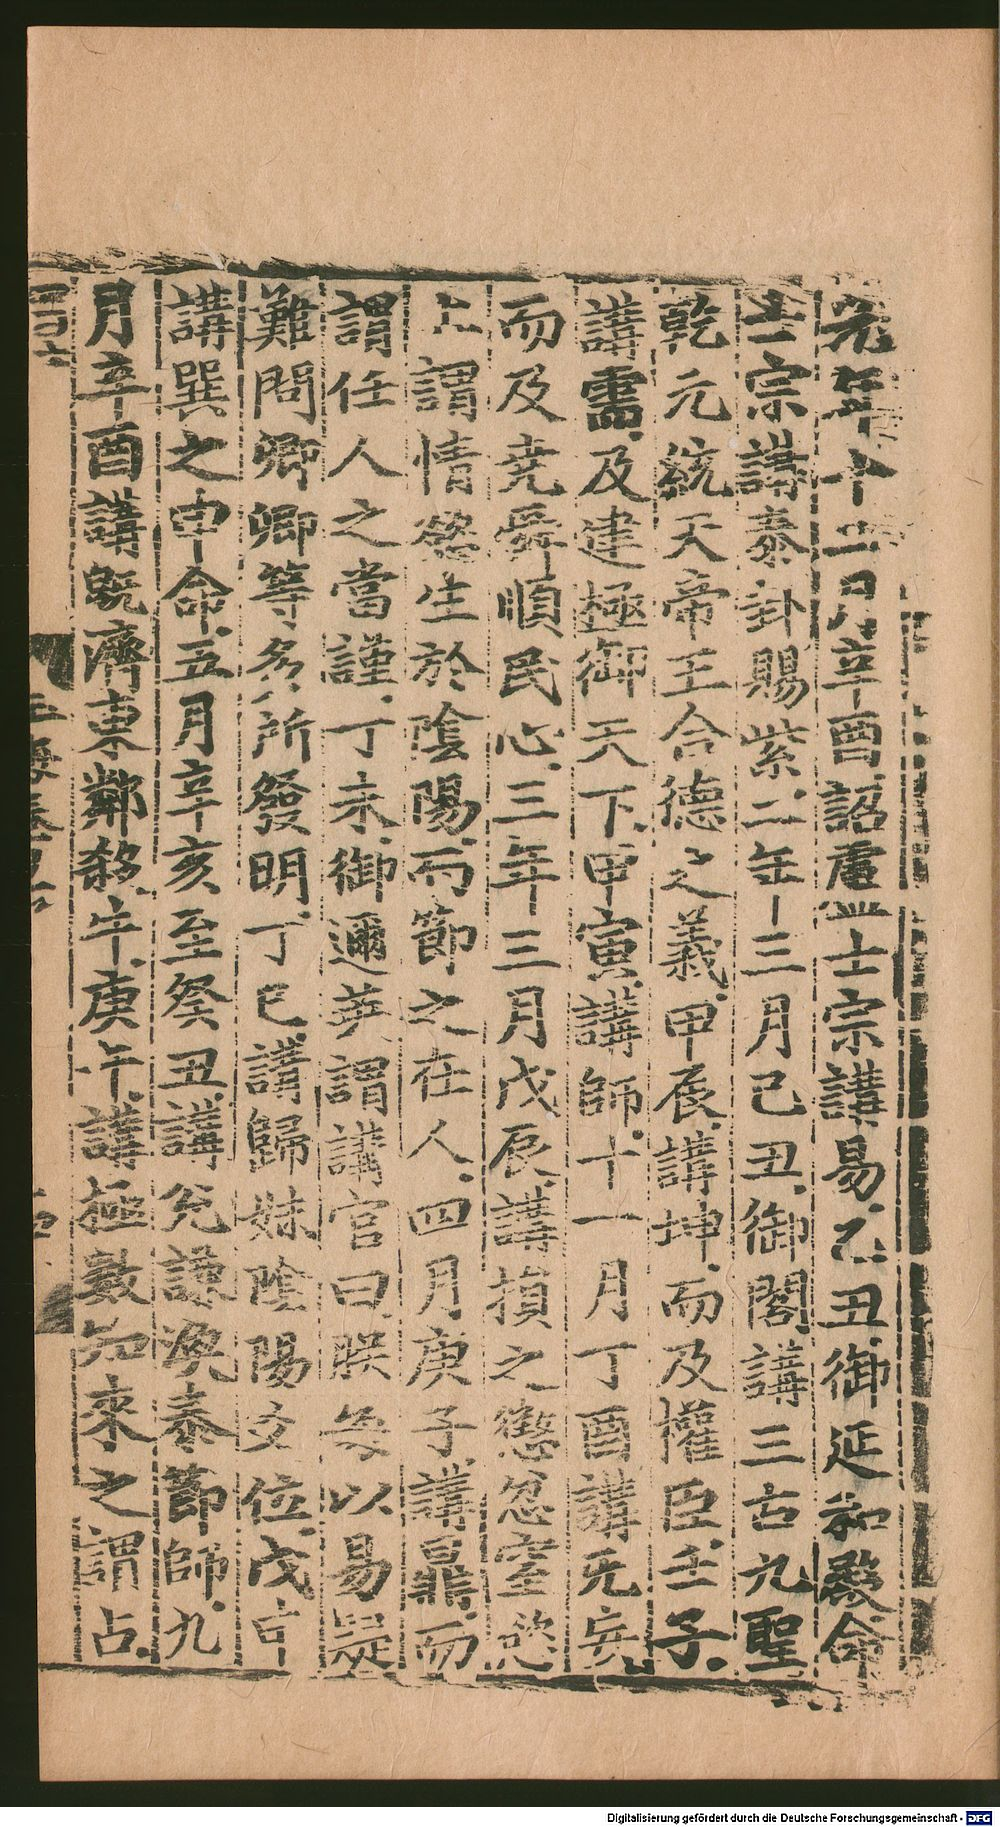 元年十二月辛酉詔盧士宗講易乙丑御延和殿命
士宗講泰卦賜紫二年十三月己丑御閣講三古九聖
乾元統天帝王合德之義甲辰講坤而及權臣壬子
講需及建極御天下甲寅講師十一月丁酉講无妄
而及堯舜順民心三年三月戊辰講損之懲忿窒慾
上謂情慾生於陰陽而節之在人四月庚子講鼎而
謂任人之當謹丁未御邇英謂講官曰朕每以易疑
難問卿卿等多所發明丁巳講歸妹陰陽交位戊午
講巽之申命五月辛亥至癸丑講兌謙渙泰節師九
月辛酉講既濟東鄰殺牛庚午講極數知來之謂占
Digitalisierung gefördert durch die Deutsche Forschungsgemeinschaft - DFG